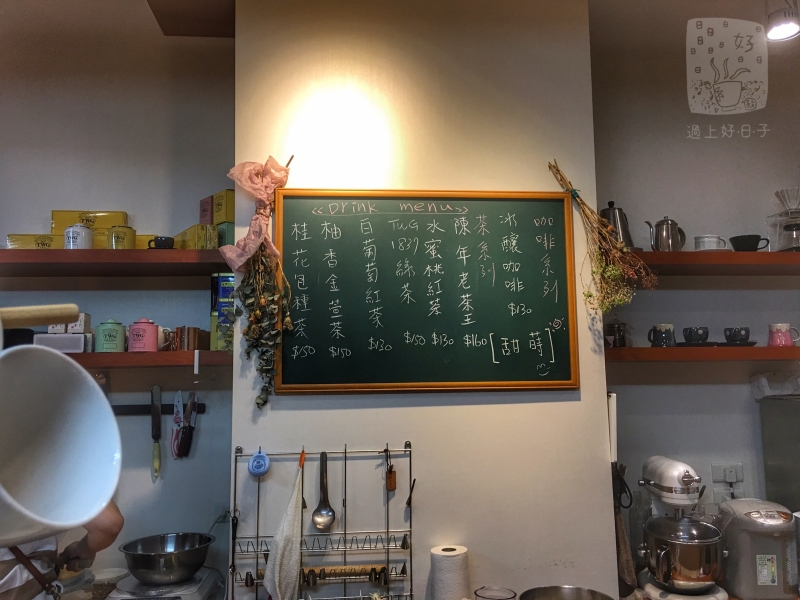 好
過上好·日·子
<<Drink menu>>
咖啡系列
冰釀咖啡 $130
茶系列
陳年老茶王 $160
水蜜桃紅茶 $130
TWG 1837 綠茶 $150
白葡萄紅茶 $130
柚香金萱茶 $150
桂花包種茶 $150
[甜蒔]
TWG
TWG